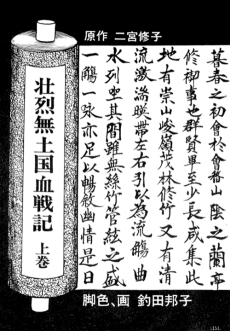 原作 二宮修子
暮春之初會於會稽山陰之蘭亭
修禊事也群賢畢至少長咸集此
地有崇山峻嶺茂林修竹又有清
流激湍暎帶左右引以為流觴曲
水列坐其間雖無絲竹管絃之盛
一觴一詠亦足以暢敘幽情是日
壮烈無土国血戦記 上巻
脚色、画 釣田邦子